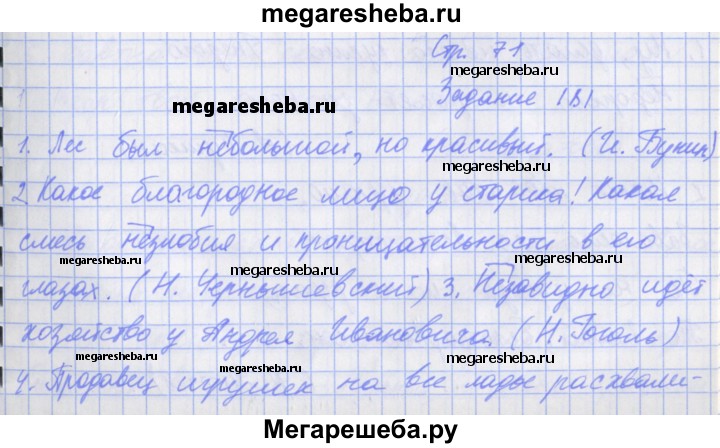 megaresheba.ru
Стр. 71
megaresheba.ru
megaresheba.ru
Задание 181
megaresheba.ru
1. Лес был небольшой, но красивый. (И. Бунин)
megaresheba.ru
megaresheba.ru
2. Какое благородное лицо у старика! Какая
смесь незлобия и проницательности в его
megaresheba.ru
megaresheba.ru
megaresheba.ru
глазах. (Н. Чернышевский) 3. Незавидно идёт
megaresheba.ru
хозяйство у Андрея Ивановича. (Н. Гоголь)
megaresheba.ru
megaresheba.ru
4. Продавец игрушек на все лады расхвали-
megaresheba.ru
Мегарешеба.ру